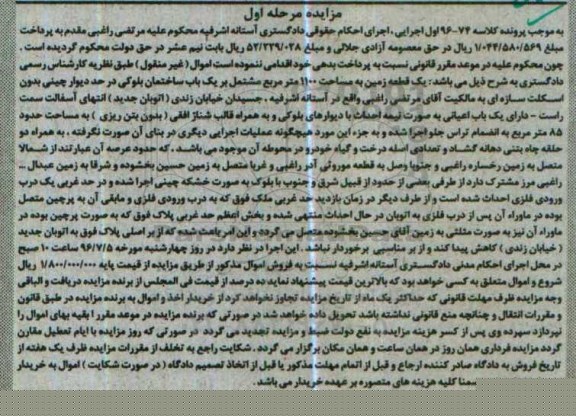 مزایده مرحله اول
به موجب پرونده کلاسه ۷۴-۹۶ اول اجرایی، اجرای احکام حقوقی دادگستری آستانه اشرفیه محکوم علیه مرتضی راغبی مقدم به پرداخت
مبلغ ۱/۰۴۴/۵۸۰/۵۶۹ ریال در حق معصومه آزادی جلالی و مبلغ ۵۲/۲۲۹/۰۲۸ ریال بابت نیم عشر در حق دولت محکوم گردیده است.
چون محکوم علیه در موعد مقرر قانونی نسبت به پرداخت بدهی خود اقدامی ننموده است اموال (غیر منقول) طبق نظریه کارشناس رسمی
دادگستری به شرح ذیل می باشد: یک قطعه زمین به مساحت ۱۱۰۰ متر مربع مشتمل بر یک باب ساختمان بلوکی در حد دیوار چینی بدون
اسکلت سازه ای به مالکیت آقای مرتضی راغبی واقع در آستانه اشرفیه، جسیدان خیابان زندی (اتوبان جدید) انتهای آسفالت سمت
راست - دارای یک باب اعیانی به صورت نیمه احداث با دیوارهای بلوکی و به همراه قالب شناژ افقی (بدون بتن ریزی) به مساحت حدود
۸۵ متر مربع به انضمام تراس جلو اجرا شده و به جزء این مورد هیچگونه عملیات اجرایی دیگری در بنای آن صورت نگرفته، به همراه دو
حلقه چاه بتنی دهانه گشاد و تعدادی اصله درخت و گیاه خودرو در محوطه آن موجود می باشد. که حدود عرصه آن عبارتند از شمالا
متصل به زمین رخساره راغبی و جنوبا وصل به قطعه موروثی آذر راغبی و غربا متصل به زمین حسین بخشوده و شرقا به زمین عبدال...
راغبی مرز مشترک دارد از طرفی بعضی از حدود از قبیل شرق و جنوب با بلوک به صورت خشکه چینی اجرا شده و در حد غربی یک درب
ورودی فلزی احداث شده است و از طرف دیگر در زمان بازدید حد غربی ملک فوق که به درب ورودی فلزی و مابقی آن به پرچین متصل
بوده در ماوراء آن پس از درب فلزی به اتوبان در حال احداث منتهی شده و بخش اعظم حد غربی پلاک فوق که به صورت پرچین بوده در
ماوراء آن نیز به صورت مثلثی به زمین آقای حسین بخشوده متصل می گردد و این امر باعث شده که از بر اصلی پلاک فوق به اتوبان جدید
(خیابان زندی) کاهش پیدا کند و از بر مناسبی برخوردار نباشد. این اجرا در نظر دارد در روز چهارشنبه مورخه ۹۶/۷/۵ ساعت ۱۰ صبح
در محل اجرای احکام مدنی دادگستری آستانه اشرفیه نسبت به فروش اموال مذکور از طریق مزایده از قیمت پایه ۱/۸۰۰/۰۰۰/۰۰۰ ریال
شروع و اموال متعلق به کسی خواهد بود که بالاترین قیمت پیشنهاد نماید ده درصد از قیمت فی المجلس از برنده مزایده دریافت و الباقی
وجه مزایده ظرف مهلت قانونی که حداکثر یک ماه از تاریخ مزایده تجاوز نخواهد کرد از خریدار اخذ و اموال به برنده مزایده در طبق قانون
و مقررات انتقال و چنانچه منع قانونی نداشته باشد تحویل داده خواهد شد در صورتی که برنده مزایده در موعد مقرر ابقیه بهای اموال را
نپردازد سپرده وی پس از کسر هزینه مزایده به نفع دولت ضبط و مزایده تجدید می گردد در صورتی که روز مزایده با ایام تعطیل مقارن
گردد مزایده فردای همان روز در همان ساعت و همان مکان برگزار می گردد. شکایت راجع به تخلف از مقررات مزایده ظرف یک هفته از
تاریخ فروش به دادگاه صادر کننده ارجاع و قبل از اتمام مهلت مذکور یا قبل از اتخاذ تصمیم دادگاه (در صورت شکایت) اموال به خریدار
سمنا کلیه هزینه های متصوره بر عهده خریدار می باشد.